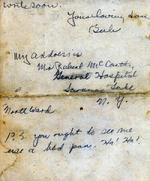 write soon.
Your loving Son
Bub
My address is
Mr Robert McCarthy
General Hospital
Saranac Lake
N. Y.
P.S. you ought to see me
use a bed pan. Ha! Ha!